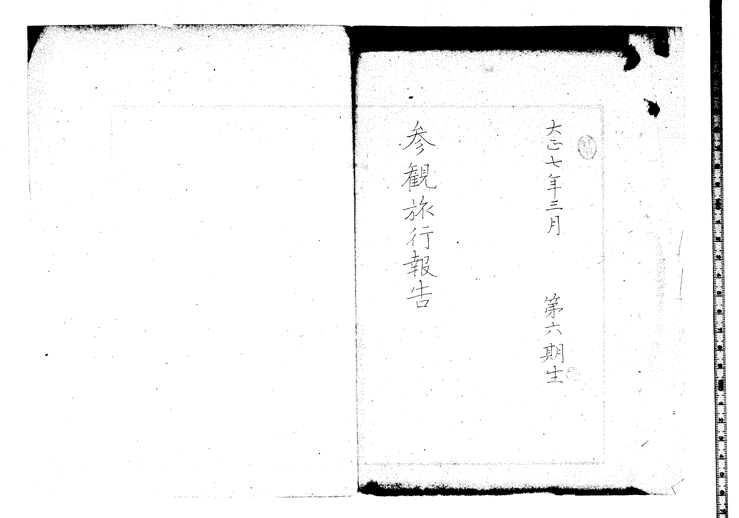 大正七年三月 第六期生
参観旅行報告